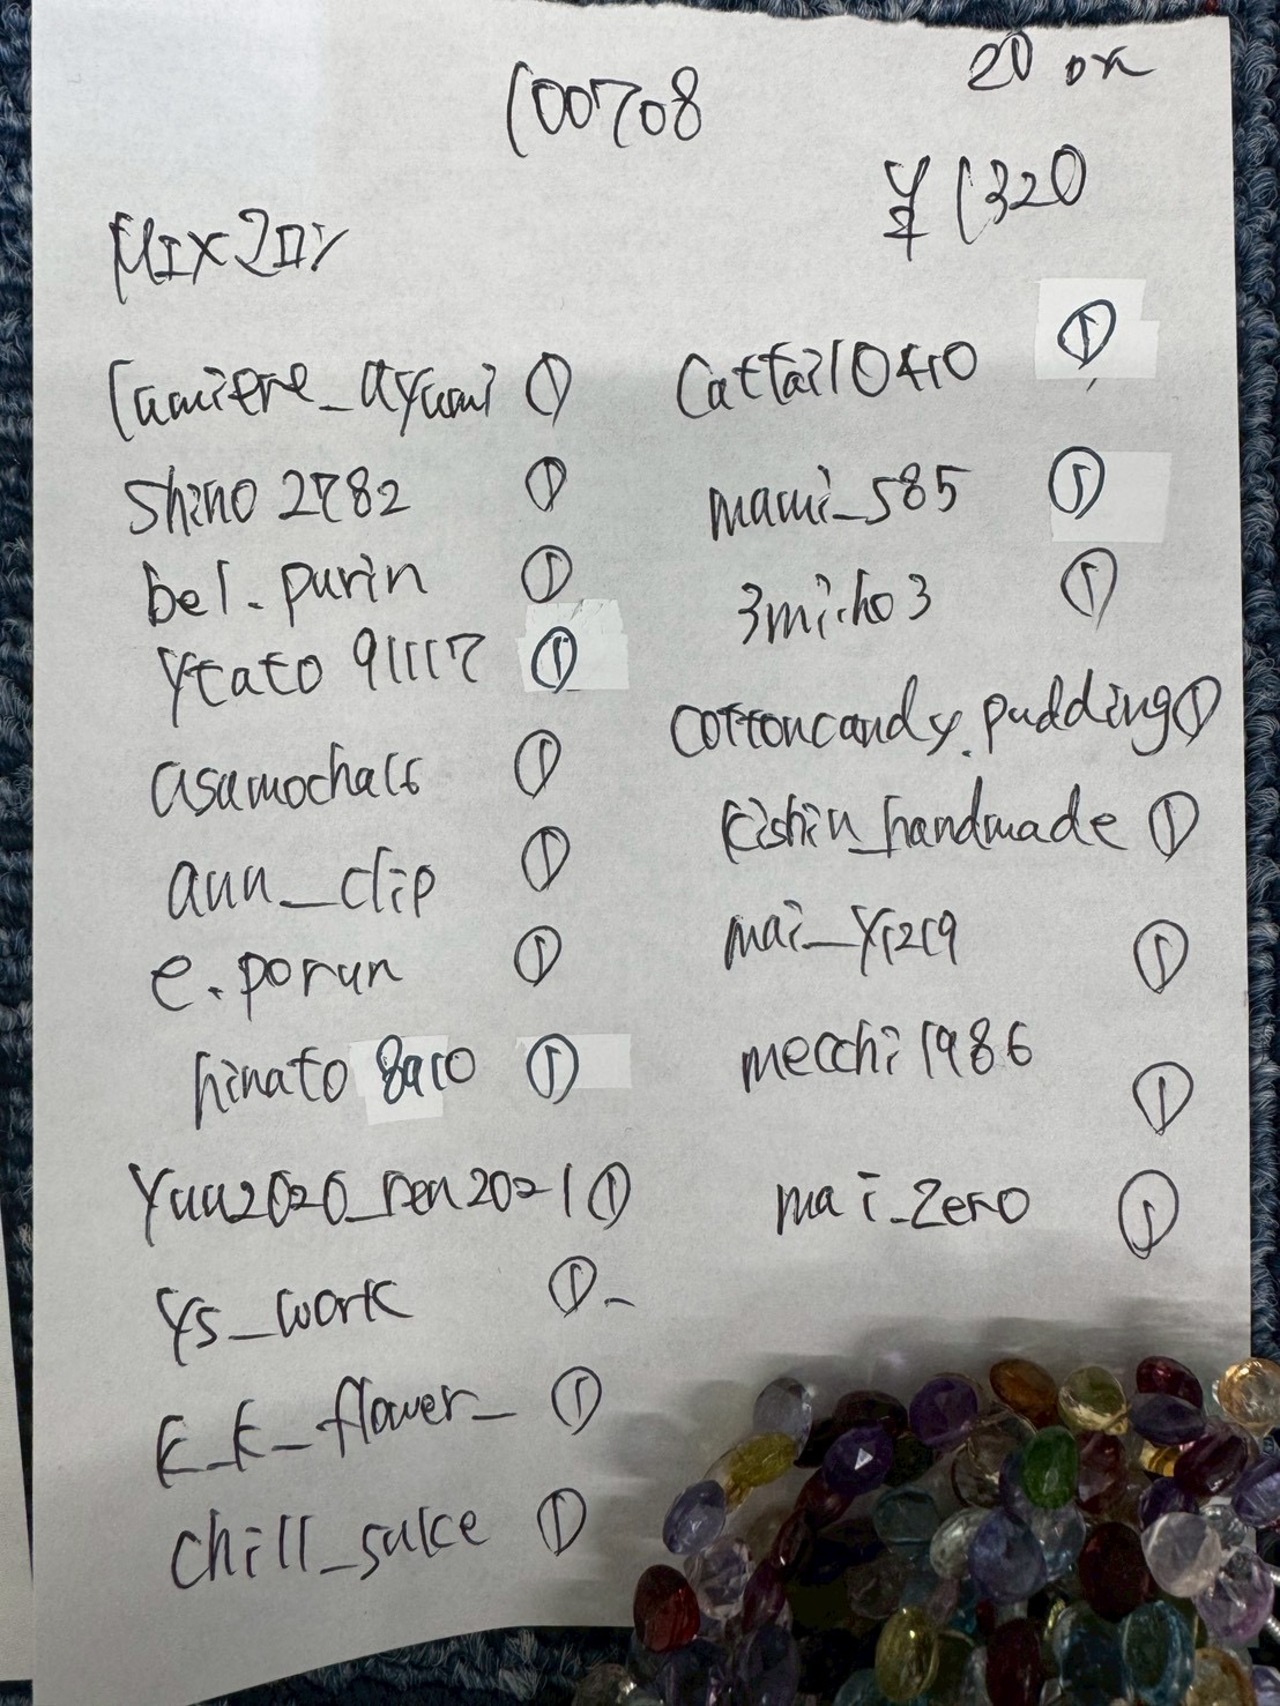 100708
20 on
¥1320
MIX 20%
lumiere_ayumi ①
shino2782 ①
bel.purin ①
ytato91117 ①
asamocha16 ①
ann_clip ①
e.porun ①
hinato8910 ①
yuu2020_ren2021 ①
ys_work ①
k_k_flower_ ①
chill_sake ①
cattail0410 ①
mami_585 ①
3miho3 ①
cottoncandy.pudding ①
kishin_handmade ①
mai_y1219 ①
mecchi1986 ①
mai_zero ①